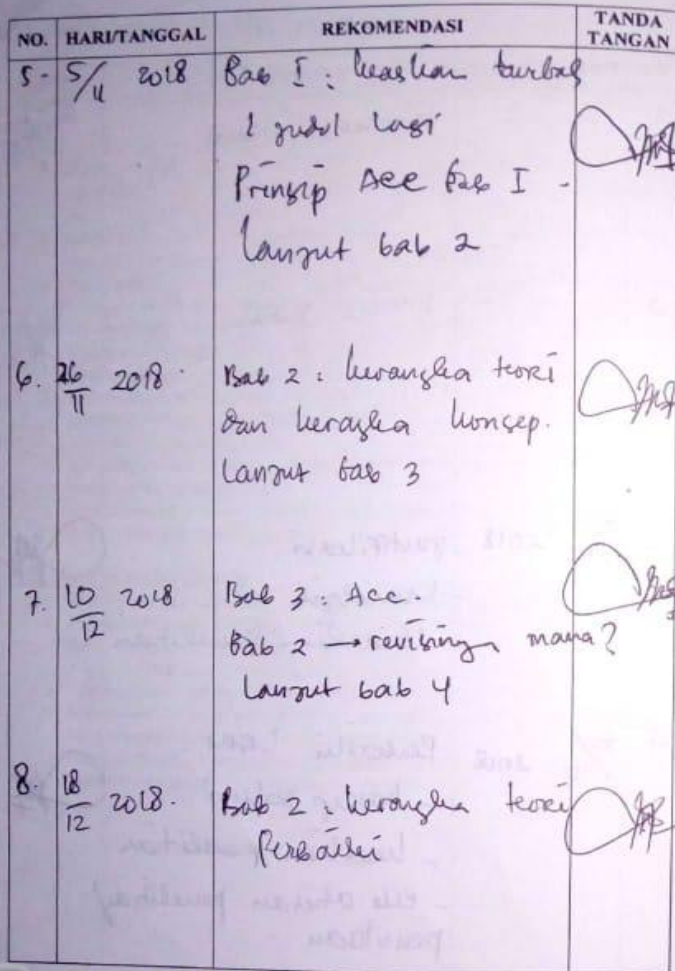 NO. HARI/TANGGAL REKOMENDASI TANDA TANGAN
5. 5/11 2018 Bab I :
1 judul lagi
Prinsip Acc bab I -
Lanjut bab 2
6. 26/11 2018. Bab 2 : kerangka teori
dan keragka konsep.
Lanjut bab 3
7. 10/12 2018 Bab 3 : Acc.
Bab 2 → revisinya mana?
Lanjut bab 4
8. 18/12 2018. Bab 2 : kerangka teori
Perbaiki